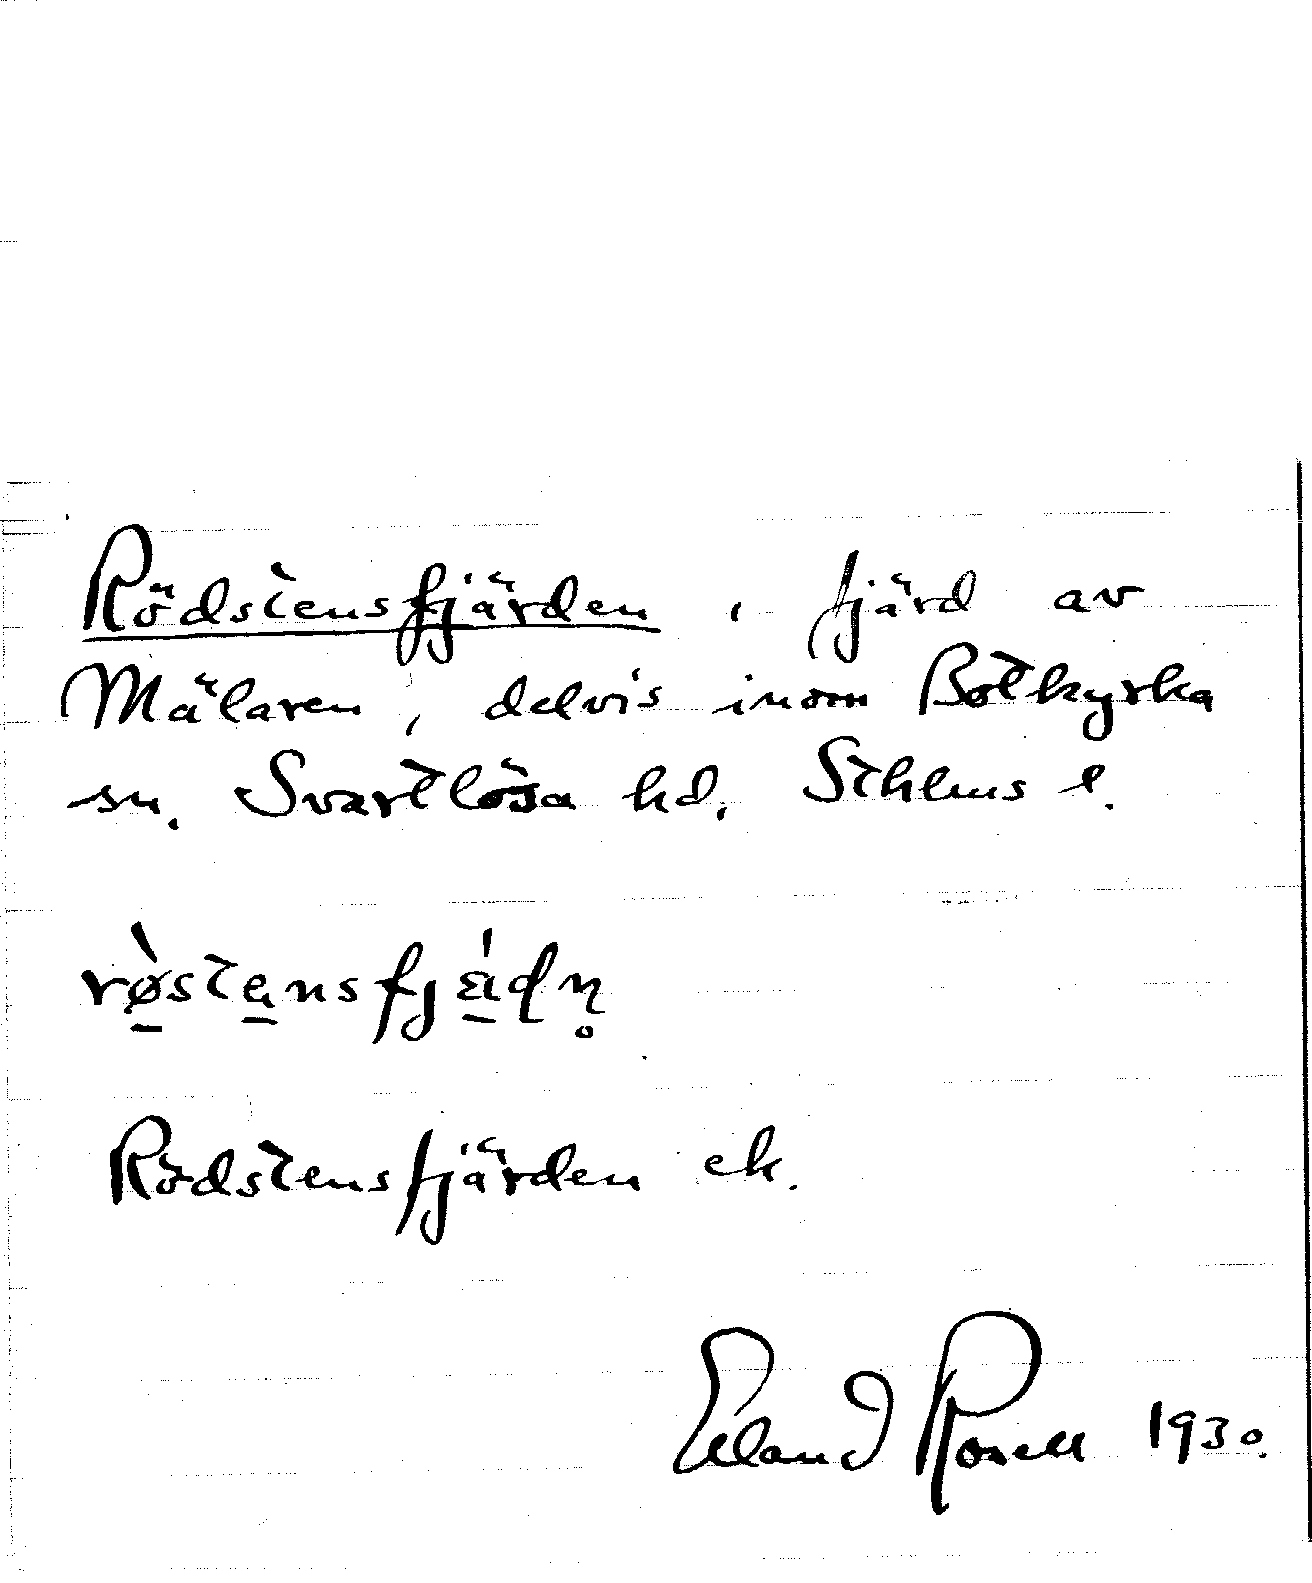 Rödstensfjärden, fjärd av
Mälaren, delvis inom Botkyrka
sn. Svartlösa hd. Sthlms l.
rø̀stensfjä́dn̥
Rödstensfjärden ek.
Erland Rosell 1930.